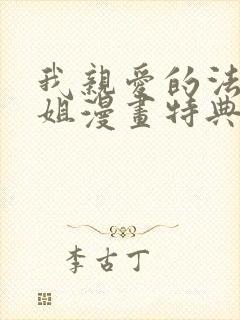 我親愛的法
姐漫畫特典
李古丁